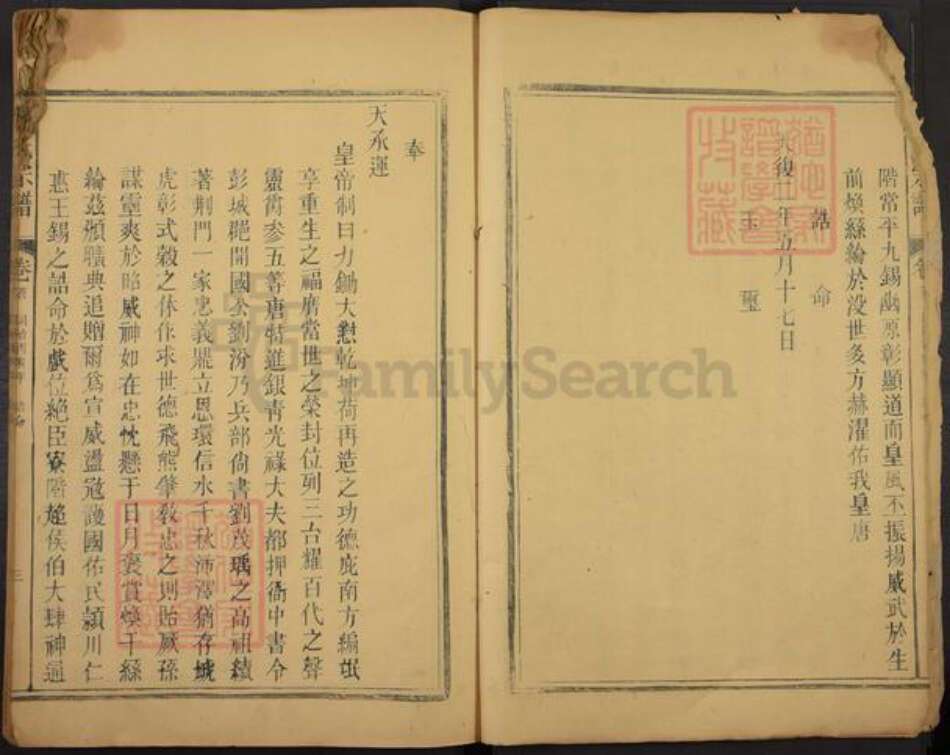 階常平九錫幽原彰顯道而皇風丕振揚威武於生
前煥絲綸於没世多方赫濯佑我皇唐
誥命
天復二年五月十七日
玉璽
猶他家譜學會收藏
奉
天承運
皇帝制曰力鋤大憝乾坤荷再造之功德庇南方編氓
享重生之福膺當世之榮封位列三台耀百代之聲
靈爵參五等唐特進銀青光祿大夫都押衙中書令
彭城郡開國公劉汾乃兵部尚書劉茂瑀之高祖績
著荆門一家忠義鼎立恩環信水千秋沛澤猶存城
虎彰式穀之休作求世德飛熊肇敎忠之則貽厥孫
謀靈爽於昭威神如在忠忱懸于日月褒賞煥于絲
綸茲頒曠典追贈爾爲宣威盪寇護國佑民潁川仁
惠王錫之誥命於戲位絶臣寮階
侯伯大肆神通
宗譜
卷
三
FamilySearch